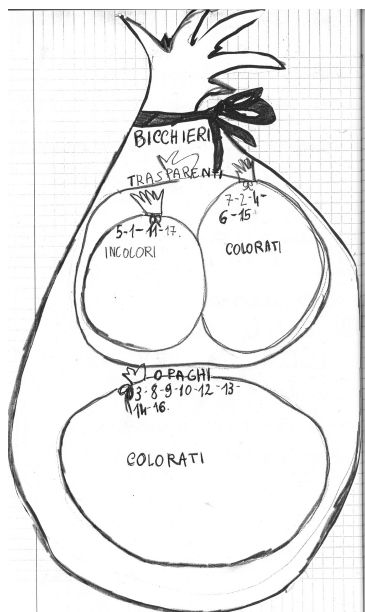 BICCHIERI
TRASPARENTI
7-2-4-
6-15
5-1-11-17.
INCOLORI
COLORATI
OPAGHI
3-8-9-10-12-13-
14-16.
COLORATI